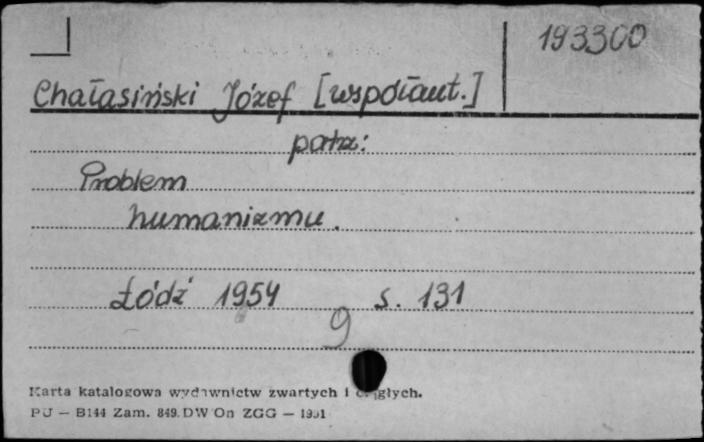 193300
Chałasiński Józef [współaut.]
patrz:
Problem
humanizmu.
Łódź 1954 s. 131
9
Karta katalogowa wydawnictw zwartych i ciągłych.
PU — B144 Zam. 849. DW On ZGG — 1951